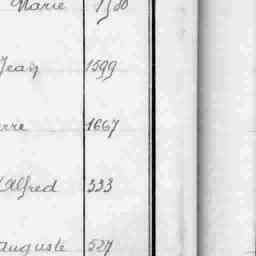 Marie 1580
Jean 1599
rre 1667
Alfred 333
Auguste 527